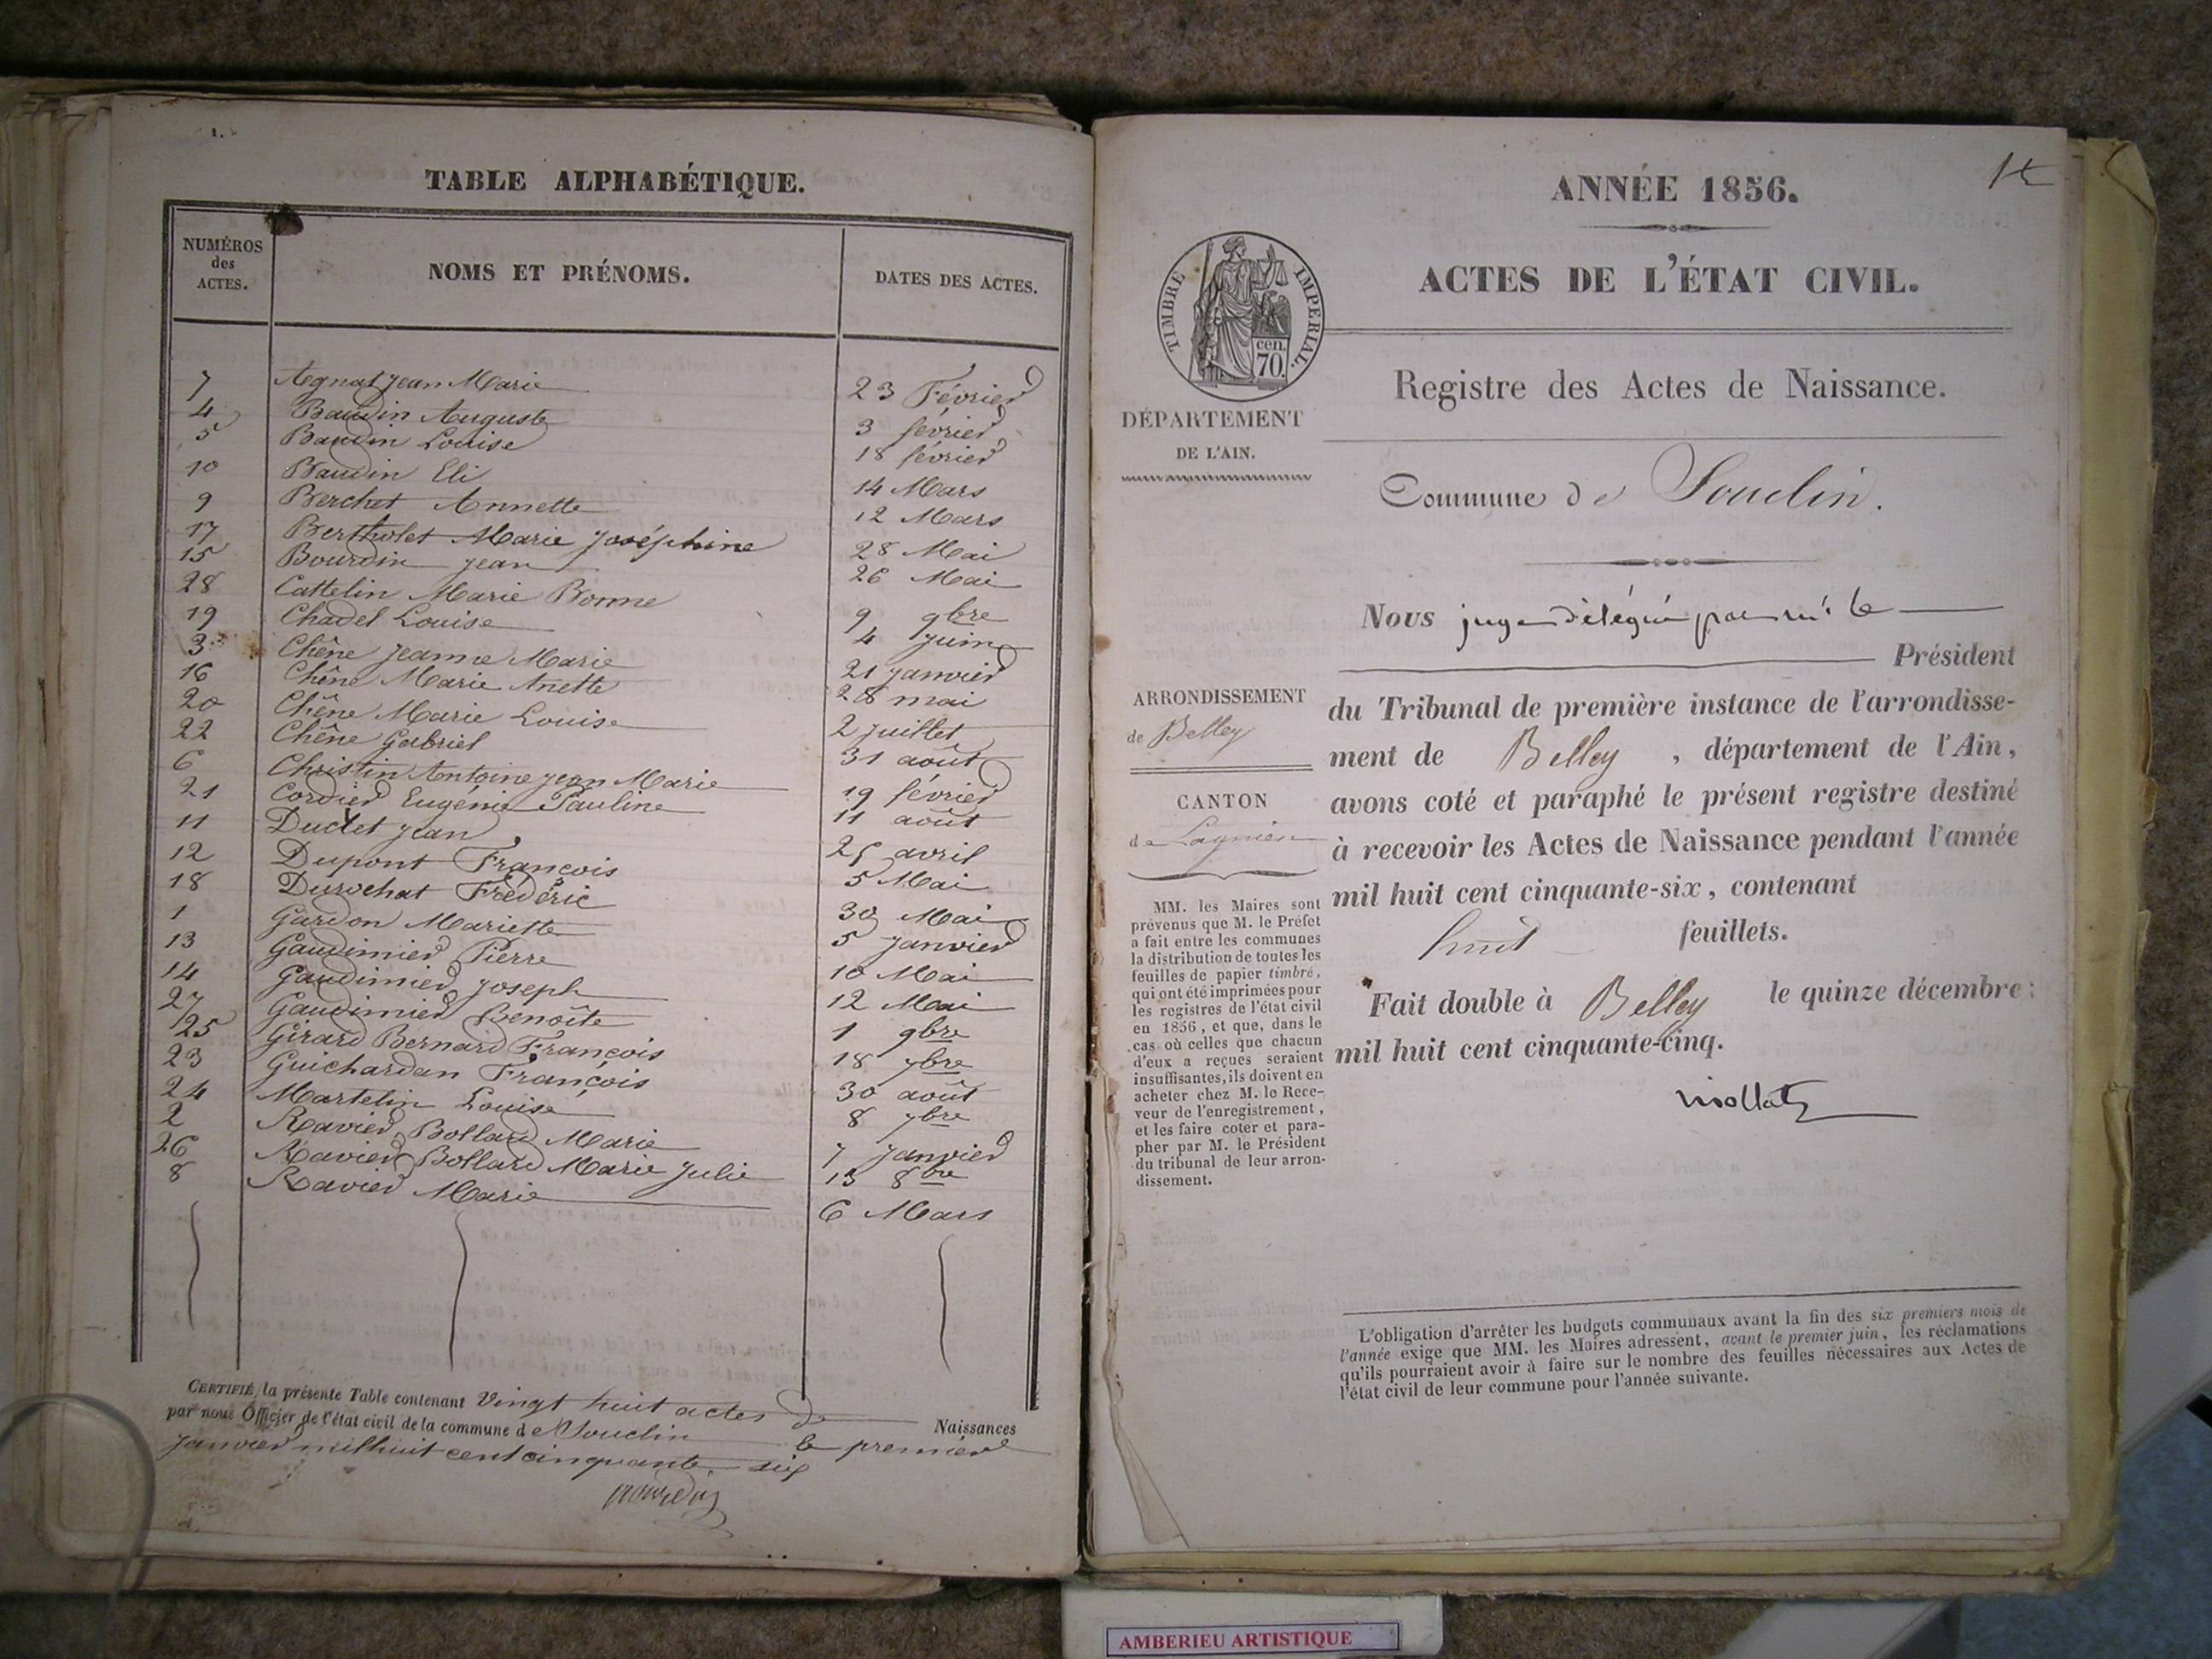 TABLE ALPHABÉTIQUE.
NUMÉROS des ACTES. NOMS ET PRÉNOMS. DATES DES ACTES.
7 Jean Marie 23 Février
4 Baudin Auguste 3 février
5 Baudin Louise 18 février
10 Baudin Eli 14 Mars
9 Berchet Annette 12 Mars
17 Bertholet Marie Joséphine 28 Mai
15 Bourdin Jean 26 Mai
28 Cattelin Marie Bonne 9 9bre
19 Chadel Louise 4 Juin
3 Chêne Jeanne Marie 21 Janvier
16 Chêne Marie Anette 28 mai
20 Chêne Marie Louise 2 Juillet
22 Chêne Gabriel 31 août
6 Christin Antoine Jean Marie 19 février
21 Cordier Eugénie Pauline 11 août
11 Duclet Jean 25 avril
12 Dupont François 5 Mai
18 Durochat Frédéric 30 Mai
1 Gardon Mariette 5 Janvier
13 Gaudimier Pierre 10 Mai
14 Gaudimier Joseph 12 Mai
27 Gaudimier Benoîte 1 9bre
25 Girard Bernard François 18 7bre
23 Guichardan François 30 août
24 Martelin Louise 8 7bre
2 Ravier Bollard Marie 7 Janvier
26 Ravier Bollard Marie Julie 13 8bre
8 Ravier Marie 6 Mars
CERTIFIÉ la présente Table contenant Vingt huit actes de Naissances
par nous Officier de l'état civil de la commune de Souclin le premier
Janvier mil huit cent cinquante six
ANNÉE 1856.
ACTES DE L'ÉTAT CIVIL.
TIMBRE IMPERIAL.
cen.
70.
Registre des Actes de Naissance.
DÉPARTEMENT
DE L'AIN.
Commune de Souclin.
Nous juge délégué par mr le
Président
du Tribunal de première instance de l'arrondisse-
ment de Belley, département de l'Ain,
avons coté et paraphé le présent registre destiné
à recevoir les Actes de Naissance pendant l'année
mil huit cent cinquante-six, contenant
huit feuillets.
Fait double à Belley le quinze décembre
mil huit cent cinquante-cinq.
ARRONDISSEMENT
de Belley
CANTON
de Lagnieu
MM. les Maires sont
prévenus que M. le Préfet
a fait entre les communes
la distribution de toutes les
feuilles de papier timbré,
qui ont été imprimées pour
les registres de l'état civil
en 1856, et que, dans le
cas où celles que chacun
d'eux a reçues seraient
insuffisantes, ils doivent en
acheter chez M. le Rece-
veur de l'enregistrement,
et les faire coter et para-
pher par M. le Président
du tribunal de leur arron-
dissement.
L'obligation d'arrêter les budgets communaux avant la fin des six premiers mois de
l'année exige que MM. les Maires adressent, avant le premier juin, les réclamations
qu'ils pourraient avoir à faire sur le nombre des feuilles nécessaires aux Actes de
l'état civil de leur commune pour l'année suivante.
AMBERIEU ARTISTIQUE